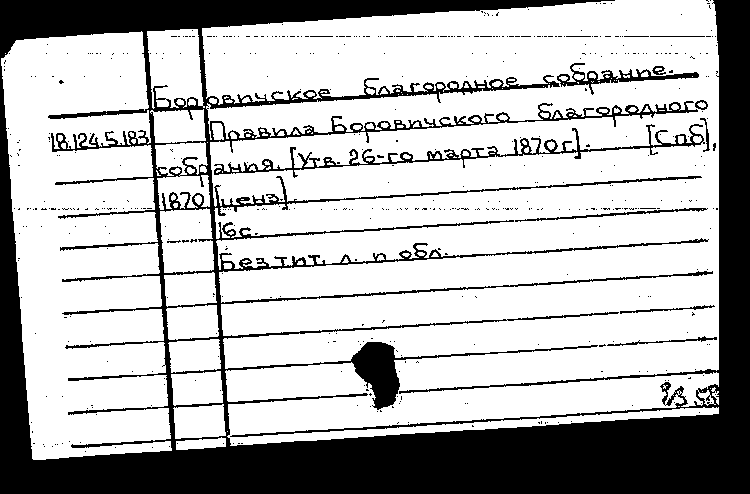 Боровичское благородное собрание.
18.124.5.183 Правила Боровичского благородного
собрания. [Утв. 26-го марта 1870 г.]. [Спб],
1870 [ценз].
16 с.
Без тит. л. и обл.
58